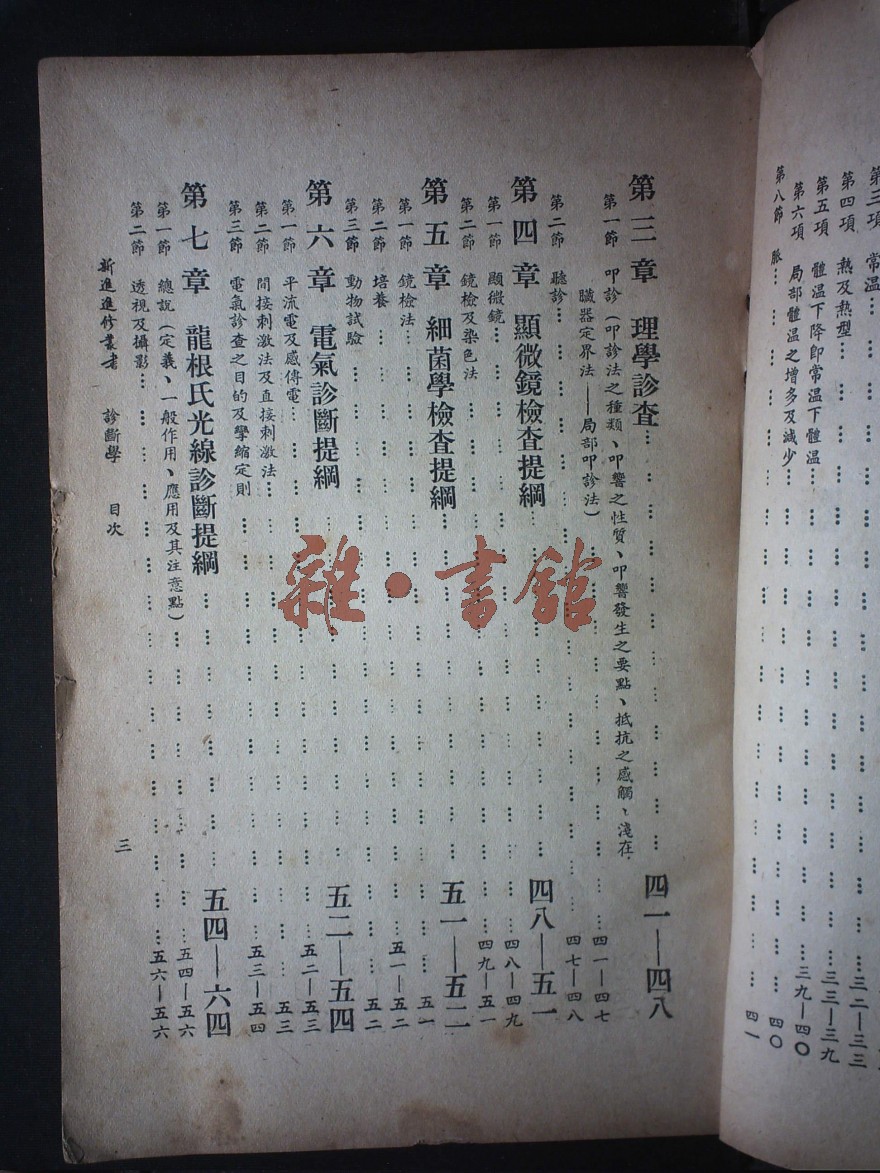 第三項 常溫
第四項 熱及熱型 三二—三三
第五項 體溫下降卽常溫下體溫 三三—三九
第六項 局部體溫之增多及減少 三九—四〇
第八節 脈 四〇
四一
第三章 理學診查 四一—四八
第一節 叩診(叩診法之種類、叩響之性質、叩響發生之要點、抵抗之感觸、淺在
臟器定界法——局部叩診法) 四一—四七
第二節 聽診 四七—四八
第四章 顯微鏡檢查提綱 四八—五一
第一節 顯微鏡 四八—四九
第二節 鏡檢及染色法 四九—五一
第五章 細菌學檢查提綱 五一—五二
第一節 鏡檢法 五一
第二節 培養 五一—五二
第三節 動物試驗 五二
第六章 電氣診斷提綱 五二—五四
第一節 平流電及感傳電 五二—五三
第二節 間接刺激法及直接刺激法 五三
第三節 電氣診查之目的及攣縮定則 五三—五四
第七章 龍根氏光線診斷提綱 五四—六四
第一節 總說(定義、一般作用、應用及其注意點) 五四—五六
第二節 透視及攝影 五六—五六
新進進修叢書 診斷學 目次
三
雜·書館